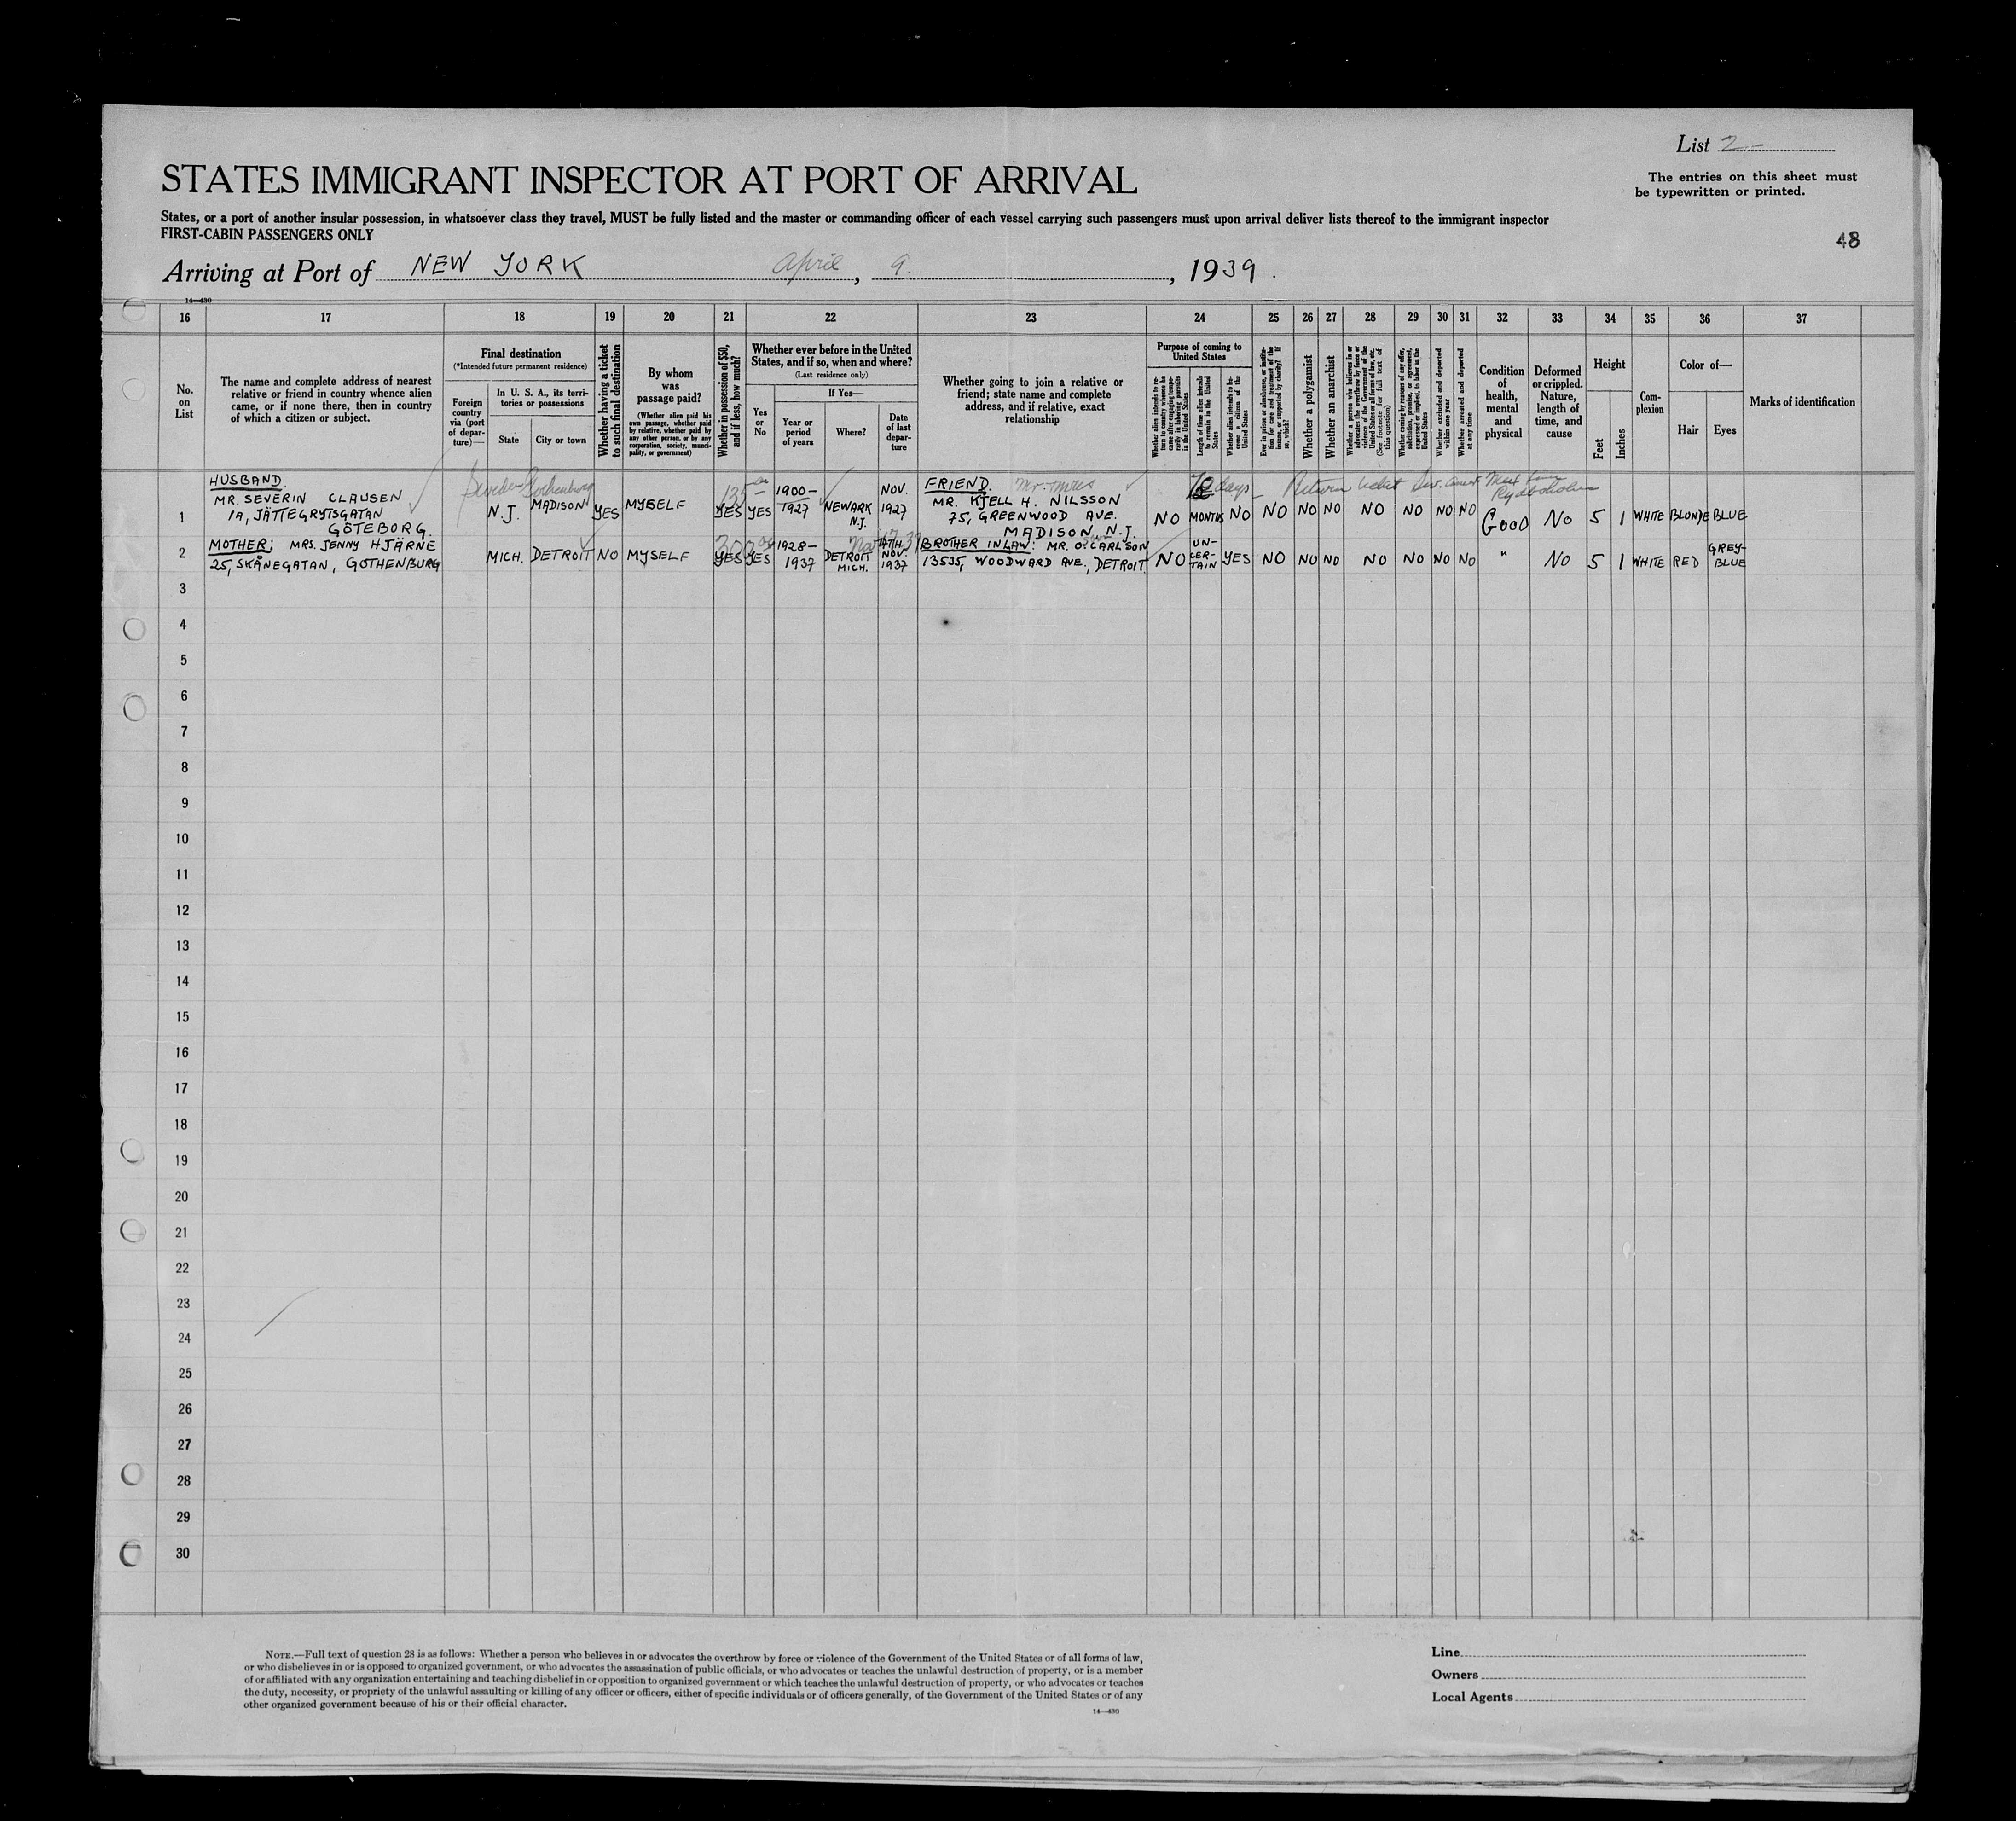 List 2-
STATES IMMIGRANT INSPECTOR AT PORT OF ARRIVAL
The entries on this sheet must
be typewritten or printed.
States, or a port of another insular possession, in whatsoever class they travel, MUST be fully listed and the master or commanding officer of each vessel carrying such passengers must upon arrival deliver lists thereof to the immigrant inspector
FIRST-CABIN PASSENGERS ONLY
48
Arriving at Port of NEW YORK April, 9., 1939.
14—430
16 17 18 19 20 21 22 23 24 25 26 27 28 29 30 31 32 33 34 35 36 37
No.
on
List
The name and complete address of nearest
relative or friend in country whence alien
came, or if none there, then in country
of which a citizen or subject.
Final destination
(*Intended future permanent residence)
Foreign
country
via (port
of depar-
ture)—
In U. S. A., its terri-
tories or possessions
State
City or town
Whether having a ticket
to such final destination
By whom
was
passage paid?
(Whether alien paid his
own passage, whether paid
by relative, whether paid by
any other person, or by any
corporation, society, munici-
pality, or government)
Whether in possession of $50,
and if less, how much?
Whether ever before in the United
States, and if so, when and where?
(Last residence only)
Yes
or
No
If Yes—
Year or
period
of years
Where?
Date
of last
depar-
ture
Whether going to join a relative or
friend; state name and complete
address, and if relative, exact
relationship
Purpose of coming to
United States
Whether alien intends to re-
turn to country whence he
came after engaging tempo-
rarily in laboring pursuits
in the United States
Length of time alien intends
to remain in the United
States
Whether alien intends to be-
come a citizen of the
United States
Ever in prison or almshouse, or institu-
tion for care and treatment of the
insane, or supported by charity? If
so, which?
Whether a polygamist
Whether an anarchist
(See footnote for full text of
this question)
Whether coming by reason of any offer,
solicitation, promise, or agreement,
expressed or implied, to labor in the
United States
Whether excluded and deported
within one year
Whether arrested and deported
at any time
Condition
of
health,
mental
and
physical
Deformed
or crippled.
Nature,
length of
time, and
cause
Height
Feet
Inches
Com-
plexion
Color of—
Hair
Eyes
Marks of identification
HUSBAND
MR. SEVERIN CLAUSEN
1A, JÄTTEGRYTSGATAN
GÖTEBORG.
Sweden Gothenburg
1 N.J. MADISON YES MYSELF 135 YES YES 1900—
1927 NEWARK
N.J. NOV.
1927
FRIEND.
MR. KJELL H. NILSSON
75, GREENWOOD AVE.
MADISON, N.J.
days - Return ticket
NO MONTHS NO NO NO NO NO NO NO NO GOOD NO 5 1 WHITE BLONDE BLUE
MOTHER: MRS. JENNY HJÄRNE
25, SKÅNEGATAN, GOTHENBURG
2 MICH. DETROIT NO MYSELF 300 YES YES 1928—
1937 DETROIT
MICH. NOV.
1937
BROTHER IN LAW: MR. O. CARLSON
13535, WOODWARD AVE., DETROIT.
NO UN-
CER-
TAIN YES NO NO NO NO NO NO NO " NO 5 1 WHITE RED GREY-
BLUE
3
4
5
6
7
8
9
10
11
12
13
14
15
16
17
18
19
20
21
22
23
24
25
26
27
28
29
30
NOTE.—Full text of question 28 is as follows: Whether a person who believes in or advocates the overthrow by force or violence of the Government of the United States or of all forms of law,
or who disbelieves in or is opposed to organized government, or who advocates the assassination of public officials, or who advocates or teaches the unlawful destruction of property, or is a member
of or affiliated with any organization entertaining and teaching disbelief in or opposition to organized government or which teaches the unlawful destruction of property, or who advocates or teaches
the duty, necessity, or propriety of the unlawful assaulting or killing of any officer or officers, either of specific individuals or of officers generally, of the Government of the United States or of any
other organized government because of his or their official character.
14—430
Line
Owners
Local Agents